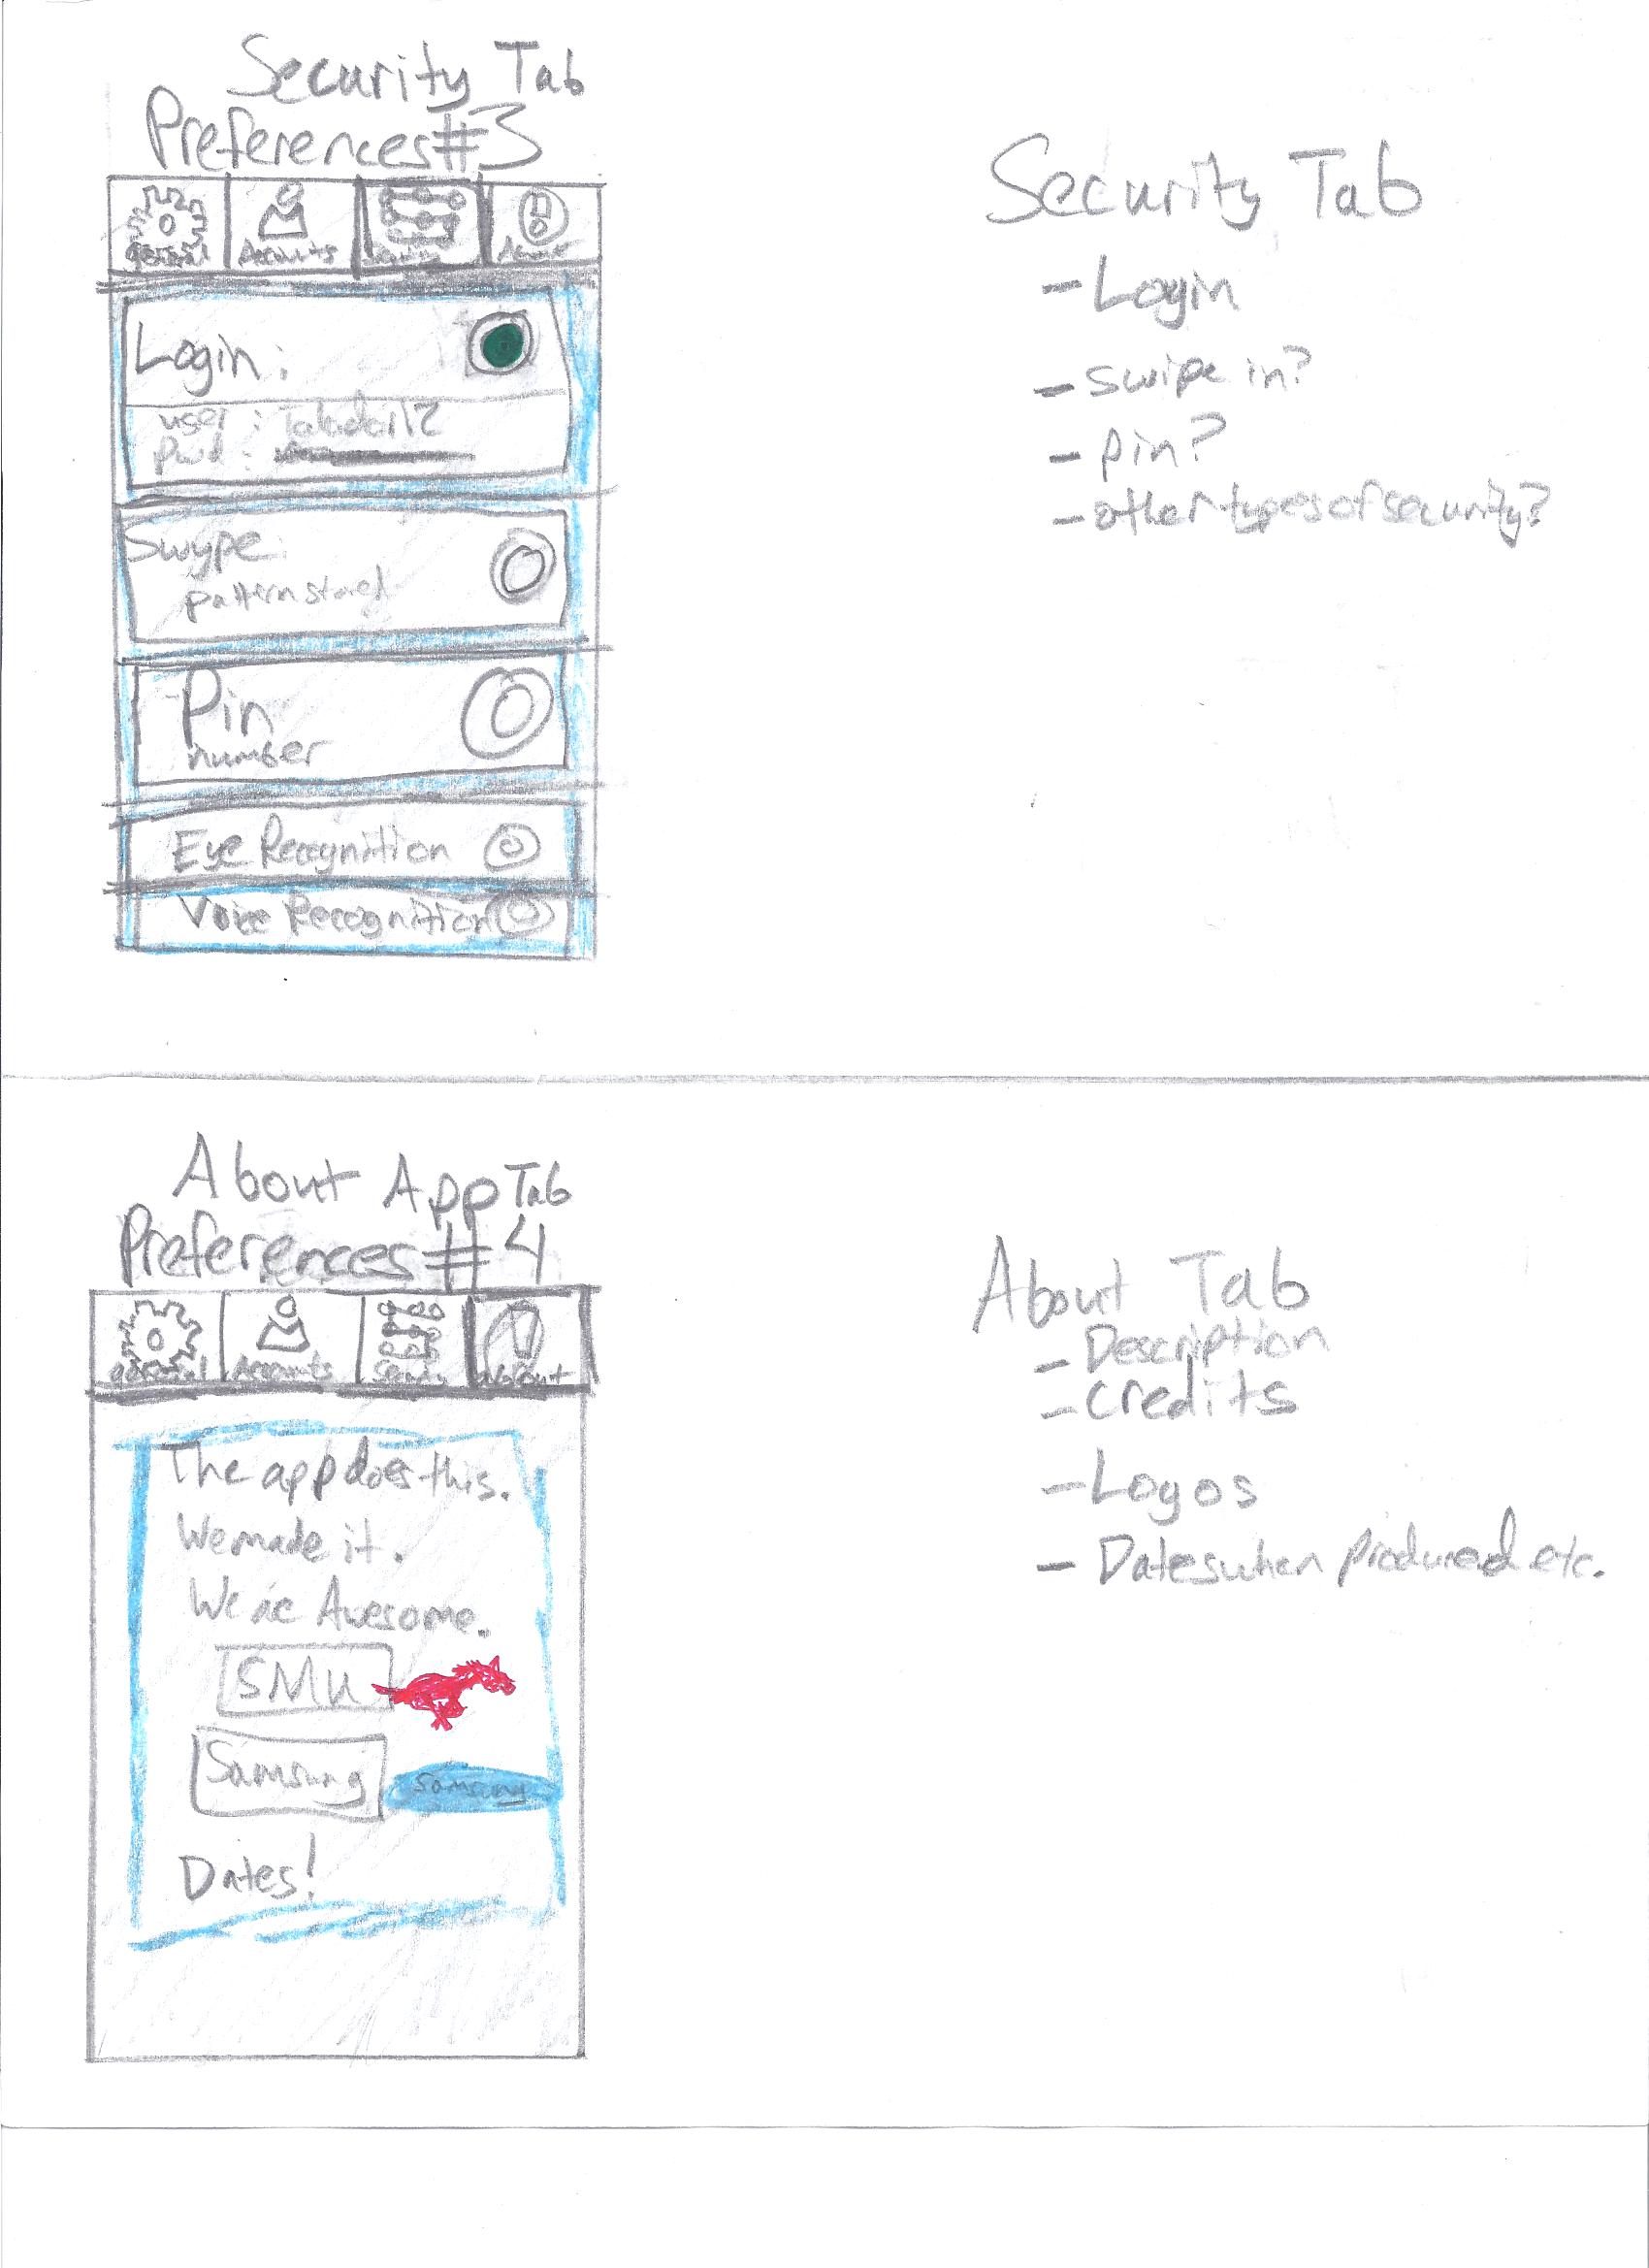 Security Tab
Preferences #3
general Accounts Security About
Login:
user:
pwd:
Swype
pattern stored
Pin
number
Eye Recognition
Voice Recognition
Security Tab
- Login
- swipe in?
- pin?
- other types of security?
About App Tab
Preferences #4
general Accounts Security About
The app does this.
We made it.
We're Awesome.
SMU
Samsung Samsung
Dates!
About Tab
- Description
- credits
- Logos
- Dates when produced etc.